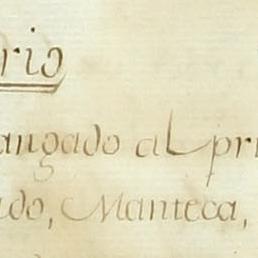 rio
angado al pri
ado, Manteca,